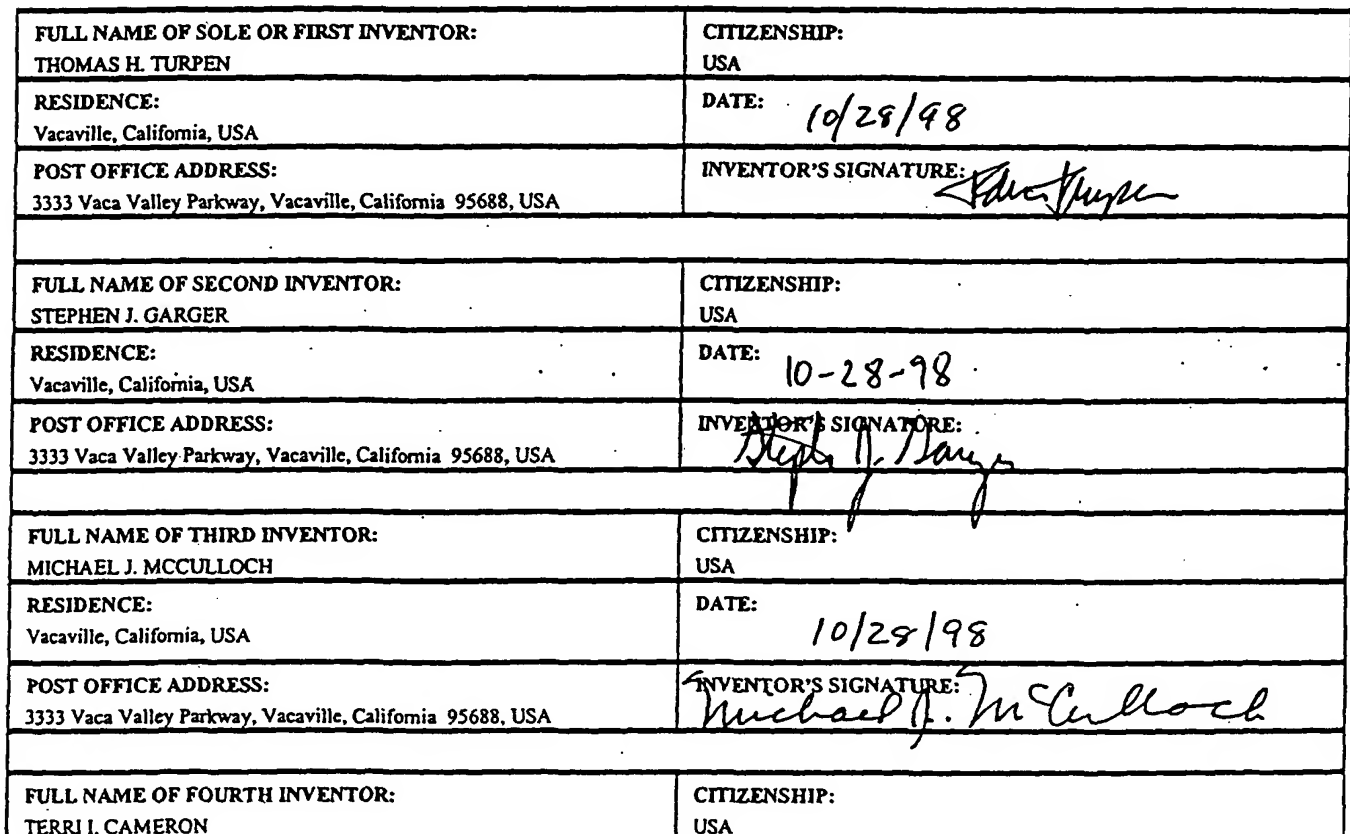 FULL NAME OF SOLE OR FIRST INVENTOR:
THOMAS H. TURPEN
CITIZENSHIP:
USA
RESIDENCE:
Vacaville, California, USA
DATE: 10/28/98
POST OFFICE ADDRESS:
3333 Vaca Valley Parkway, Vacaville, California 95688, USA
INVENTOR'S SIGNATURE:
FULL NAME OF SECOND INVENTOR:
STEPHEN J. GARGER
CITIZENSHIP:
USA
RESIDENCE:
Vacaville, California, USA
DATE: 10-28-98
POST OFFICE ADDRESS:
3333 Vaca Valley Parkway, Vacaville, California 95688, USA
INVENTOR'S SIGNATURE:
FULL NAME OF THIRD INVENTOR:
MICHAEL J. MCCULLOCH
CITIZENSHIP:
USA
RESIDENCE:
Vacaville, California, USA
DATE:
10/28/98
POST OFFICE ADDRESS:
3333 Vaca Valley Parkway, Vacaville, California 95688, USA
INVENTOR'S SIGNATURE:
Michael J. McCulloch
FULL NAME OF FOURTH INVENTOR:
TERRI I. CAMERON
CITIZENSHIP:
USA